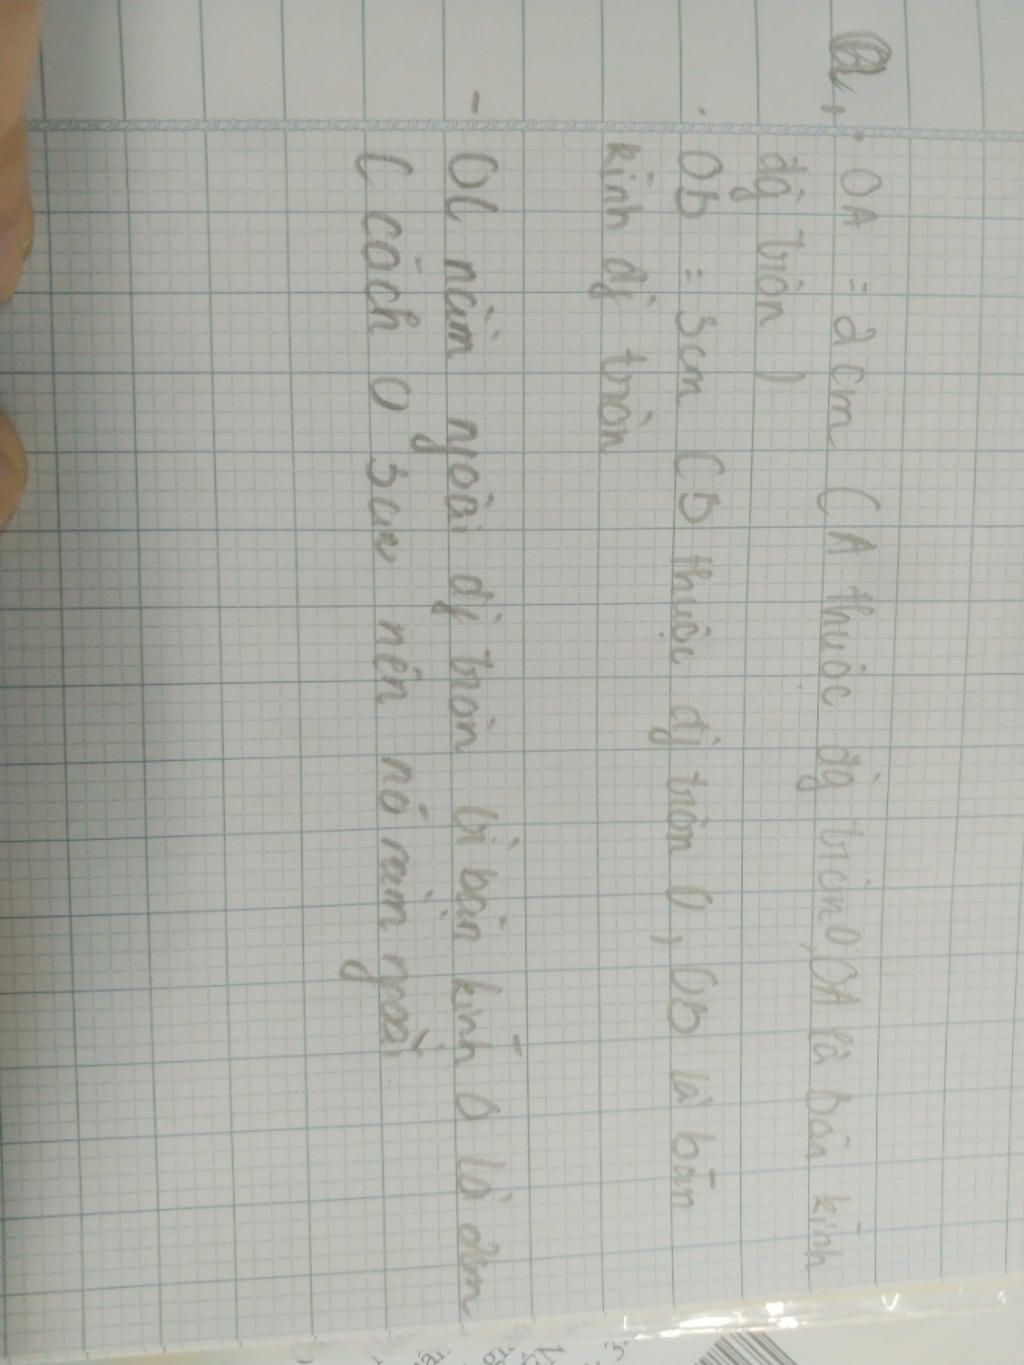 a, • OA = 2cm (A thuộc đg tròn O, OA là bán kính
đg tròn)
• OB = 3cm (B thuộc đg tròn O, OB là bán
kính đg tròn
- OC nằm ngoài đg tròn vì bán kính O là 2cm
C cách O 3cm nên nó nằm ngoài